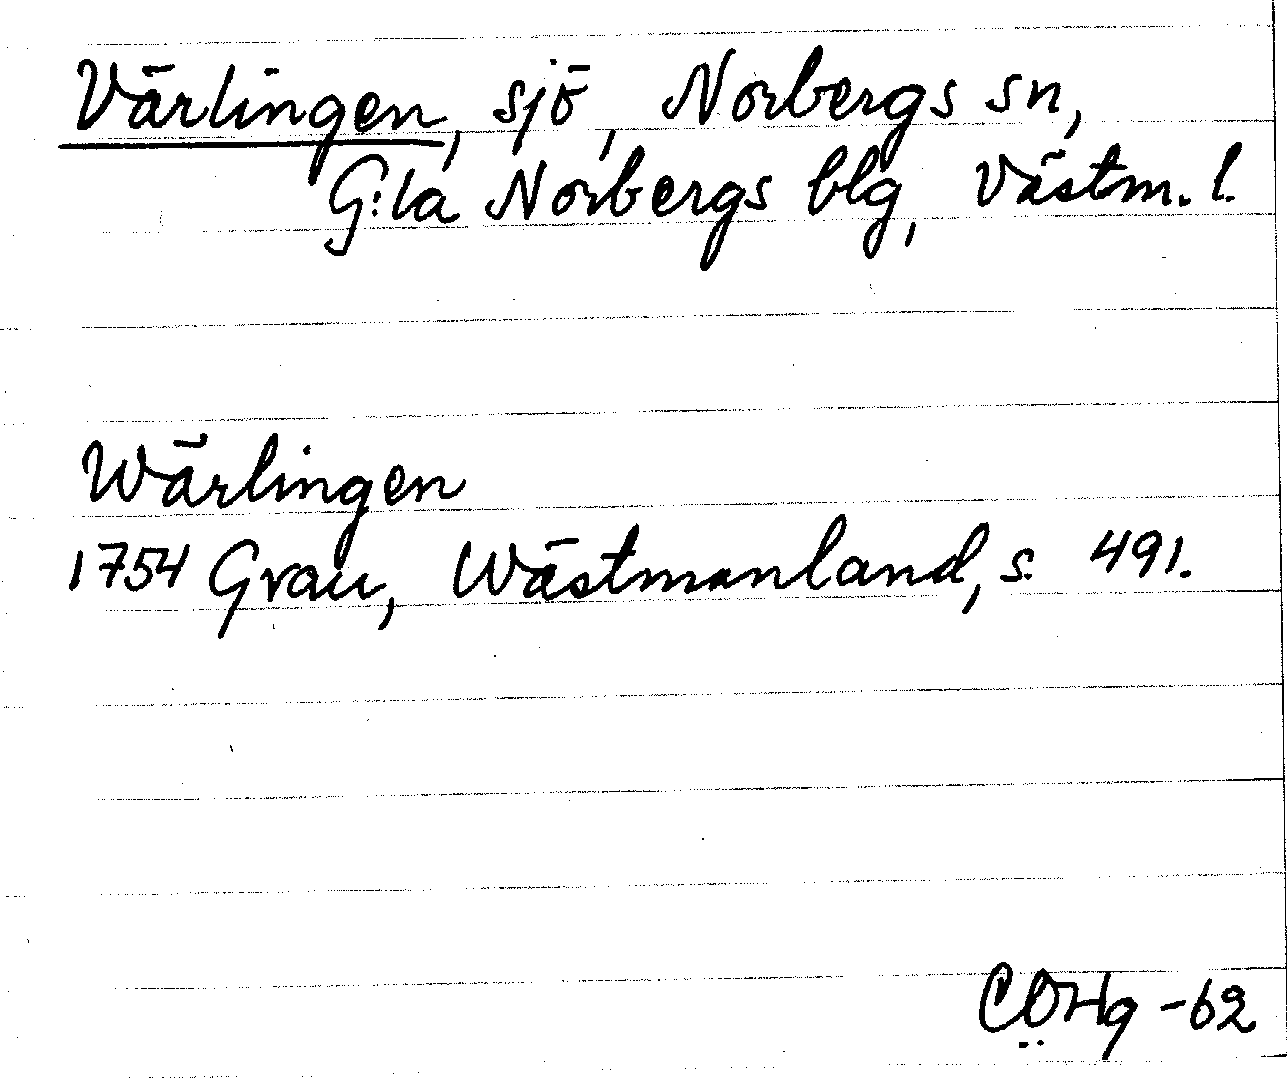 Värlingen, sjö, Norbergs sn,
G:la Norbergs blg, Västm. l.
Wärlingen
1754 Grau, Wästmanland, s. 491.
CÖHg -62